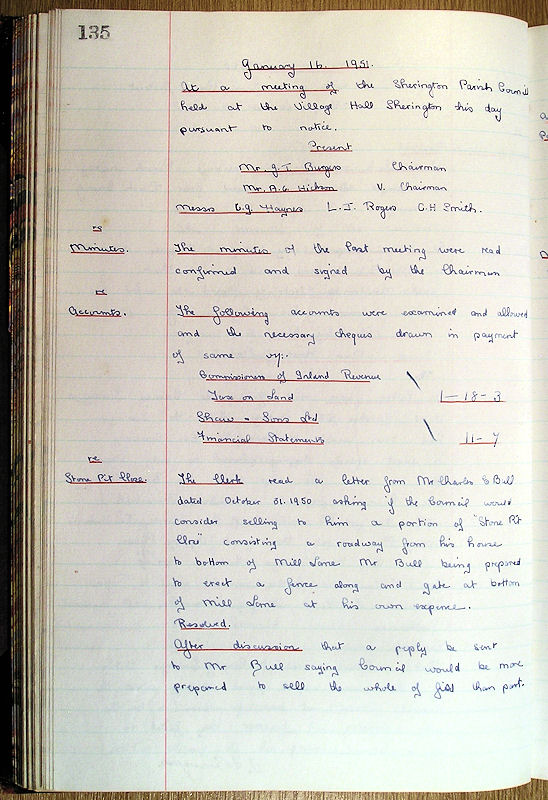 135
January 16. 1951.
At a meeting of the Sherington Parish Council
held at the Village Hall Sherington this day
pursuant to notice.
Present
Mr. J. T. Burgess Chairman
Mr. A. G. Hickson V. Chairman
Messrs C. J. Haynes L. J. Rogers C. H Smith.
re
Minutes. The minutes of the last meeting were read
confirmed and signed by the Chairman
re
Accounts. The following accounts were examined and allowed
and the necessary cheques drawn in payment
of same viz:-
Commissioners of Inland Revenue
Taxe on Land 1-18-3
Shaw & Sons Ltd
Financial Statements 11-7
re
Stone Pit Close. The Clerk read a letter from Mr Charles Bull
dated October 31. 1950 asking if the Council would
consider selling to him a portion of "Stone Pit
consisting a roadway from his house
to bottom of Mill Lane Mr Bull being prepared
to erect a fence along and gate at bottom
of Mill Lane at his own expence.
Resolved.
After discussion that a reply be sent
to Mr Bull saying Council would be more
prepared to sell the whole of field than part.